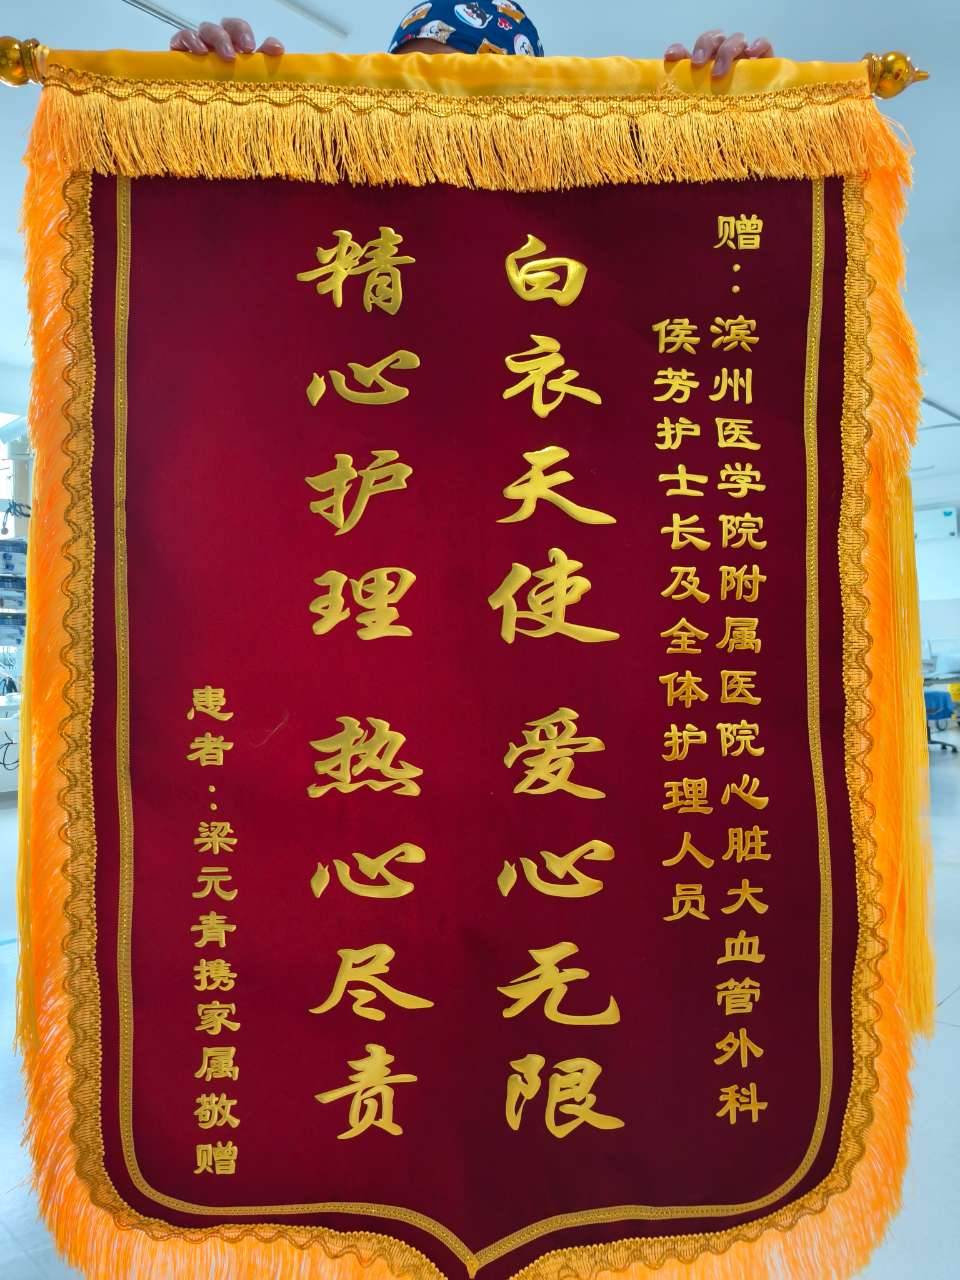 赠：滨州医学院附属医院心脏大血管外科
侯芳护士长及全体护理人员
白衣天使 爱心无限
精心护理 热心尽责
患者：梁元青携家属敬赠